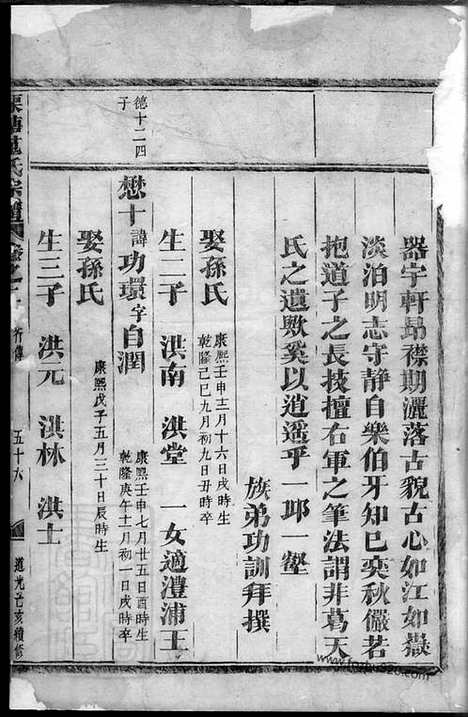 器宇軒昂襟期灑落古貌古心如江如嶽
淡泊明志守靜自樂伯牙知巳奕秋儼若
抱道子之長技擅右軍之筆法謂非葛天
氏之遺歟奚以逍遥乎一邱一壑
族弟功訓拜撰
娶孫氏
康熙壬申十二月十六日戌時生
乾隆己巳九月初九日丑時卒
生二子 洪南 洪堂 一女適澧浦王
德十二四子
懋十 諱功環字自潤
康熙壬申七月廿五日酉時生
乾隆庚午十一月初一日戌時卒
娶孫氏
康熙戊子五月三十日辰時生
生三子 洪元 洪林 洪士
氏宗譜
卷之
行傳
五十六
道光辛亥續修